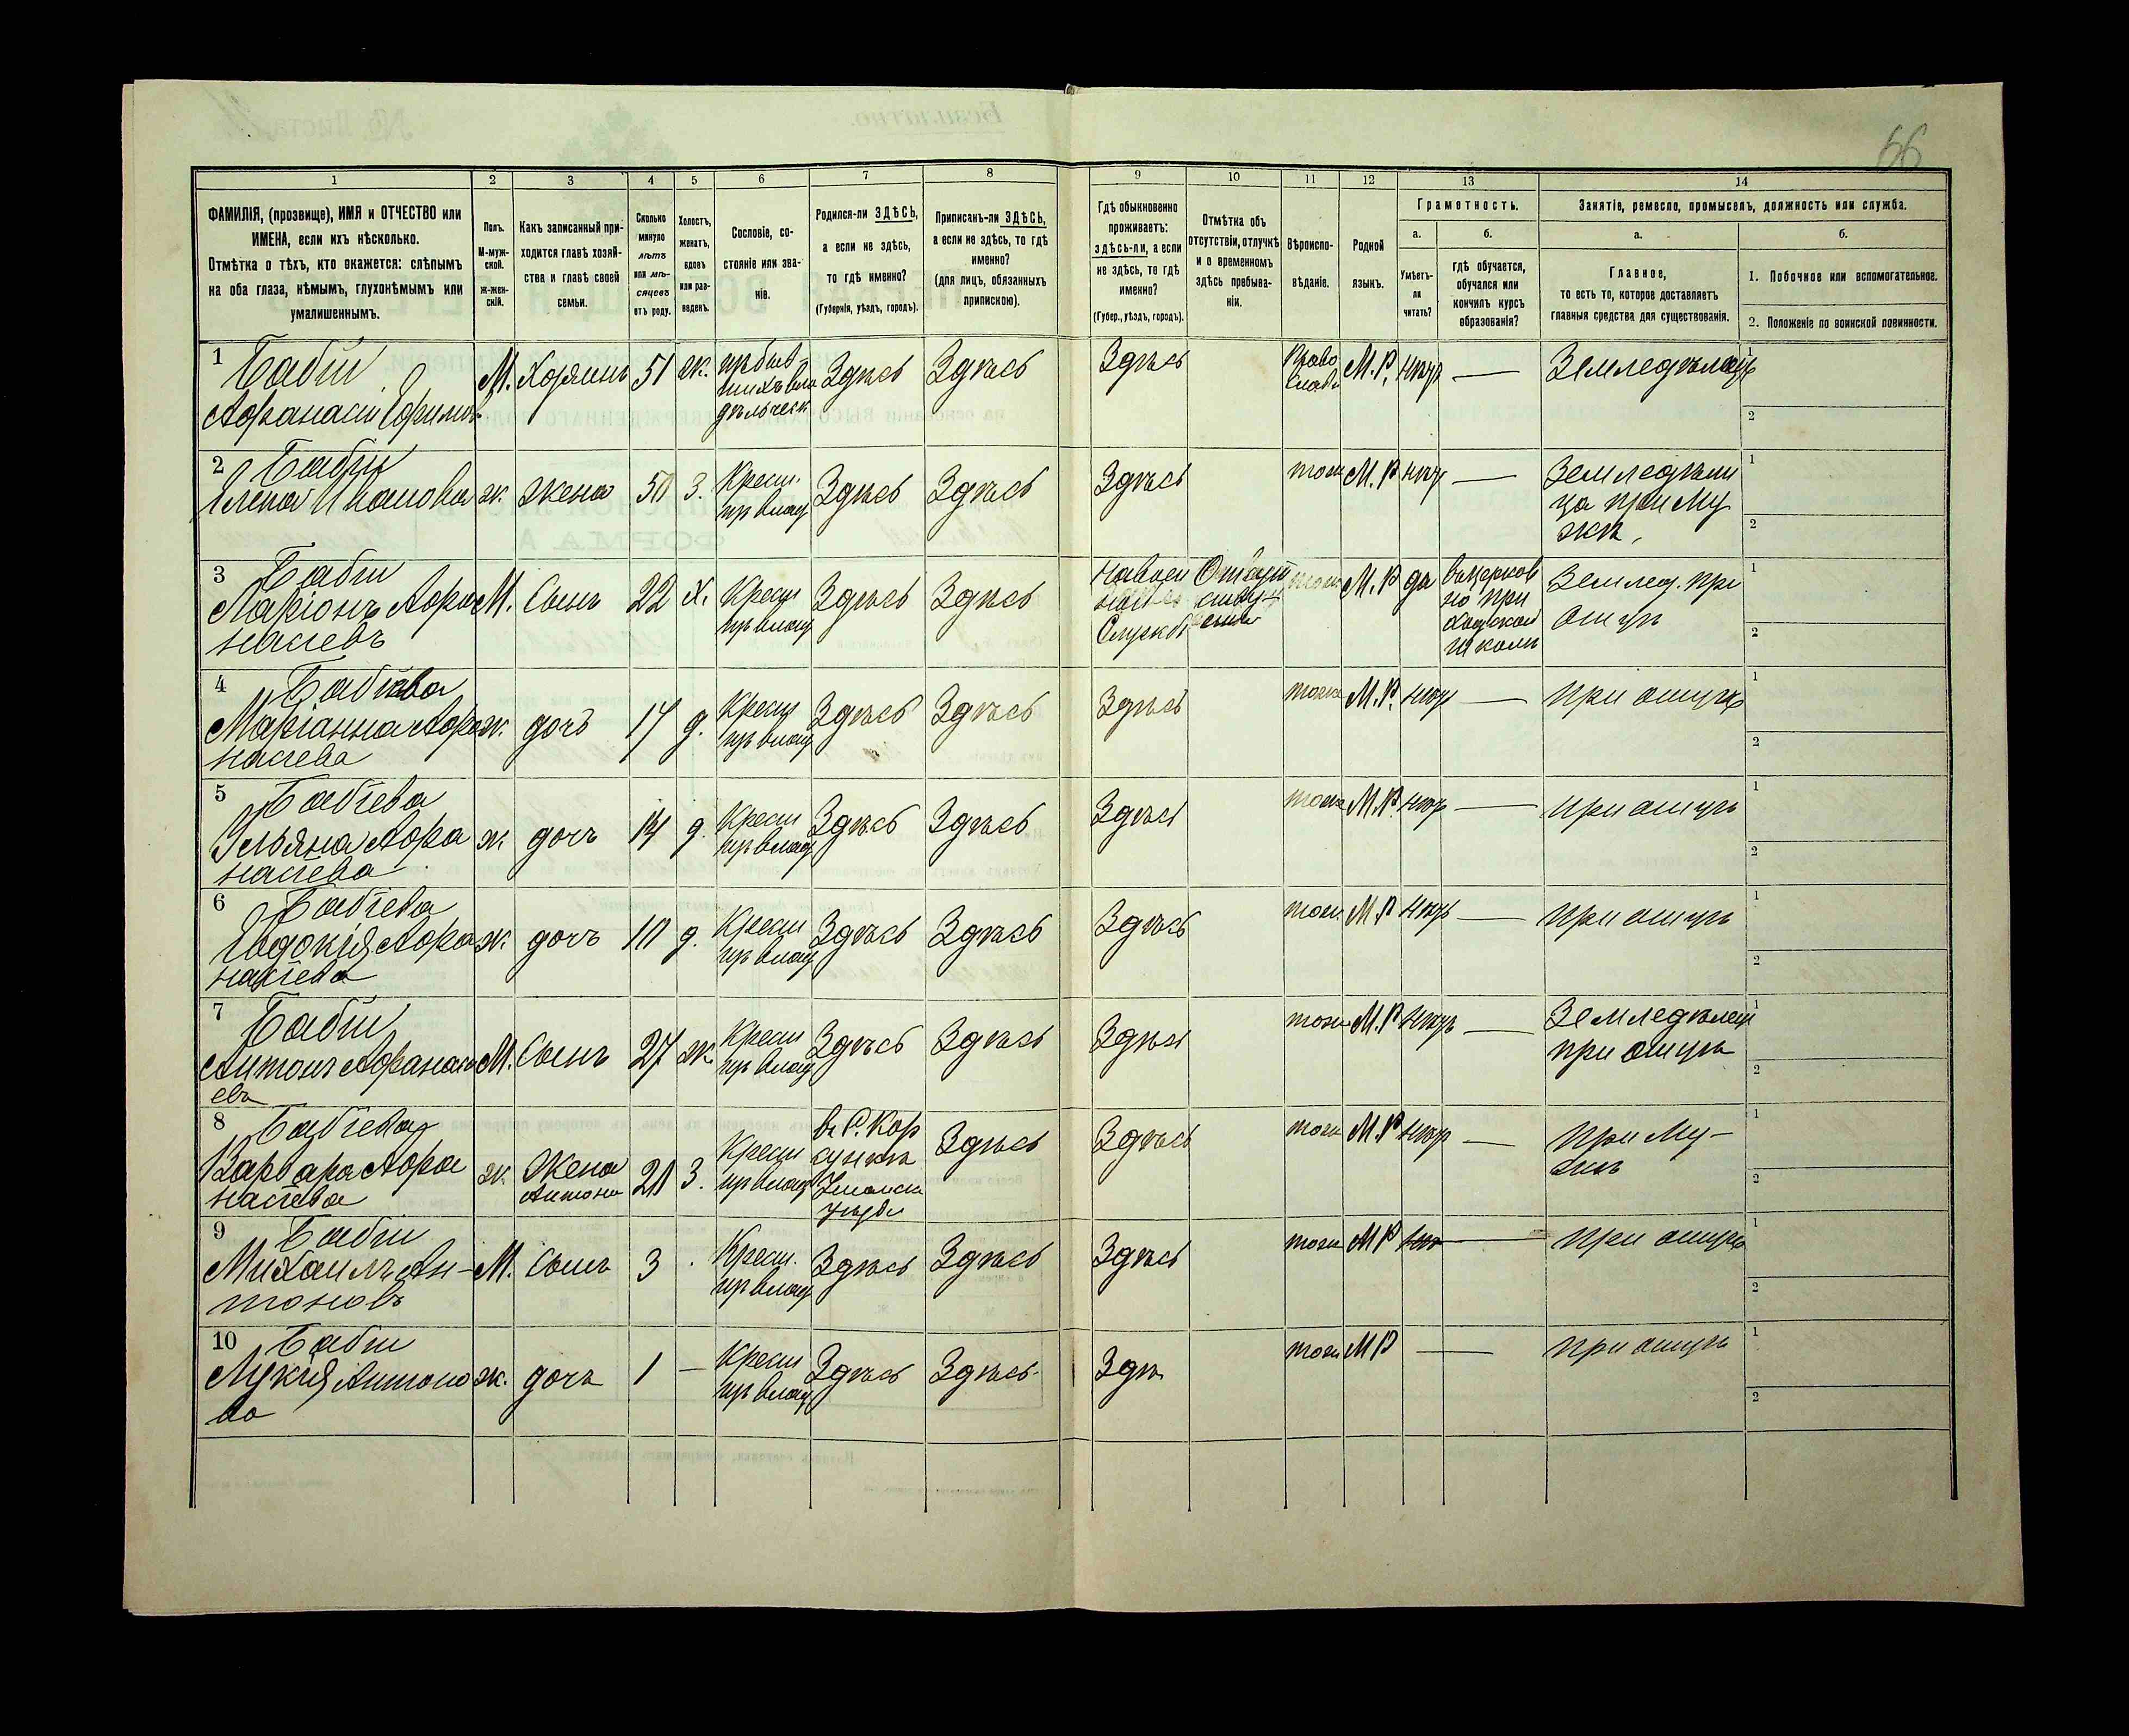 66
1 2 3 4 5 6 7 8 9 10 11 12 13 14
ФАМИЛІЯ, (прозвище), ИМЯ и ОТЧЕСТВО или
ИМЕНА, если ихъ нѣсколько.
Отмѣтка о тѣхъ, кто окажется: слѣпымъ
на оба глаза, нѣмымъ, глухонѣмымъ или
умалишеннымъ.
Полъ.
М-муж-
ской.
Ж-жен-
скій.
Какъ записанный при-
ходится главѣ хозяй-
ства и главѣ своей
семьи.
Сколько
минуло
лѣтъ
или мѣ-
сяцевъ
отъ роду.
Холостъ,
женатъ,
вдовъ
или раз-
веденъ.
Сословіе, со-
стояніе или зва-
ніе.
Родился-ли ЗДѢСЬ,
а если не здѣсь,
то гдѣ именно?
(Губернія, уѣздъ, городъ).
Приписанъ-ли ЗДѢСЬ,
а если не здѣсь, то гдѣ
именно?
(для лицъ, обязанныхъ
припискою).
Гдѣ обыкновенно
проживаетъ:
здѣсь-ли, а если
не здѣсь, то гдѣ
именно?
(Губер., уѣздъ, городъ).
Отмѣтка объ
отсутствіи, отлучкѣ
и о временномъ
здѣсь пребыва-
ніи.
Вѣроиспо-
вѣданіе.
Родной
языкъ.
Грамотность.
а.
Умѣетъ-
ли
читать?
б.
гдѣ обучается,
обучался или
кончилъ курсъ
образованія?
Занятіе, ремесло, промыселъ, должность или служба.
а.
Главное,
то есть то, которое доставляетъ
главныя средства для существованія.
б.
1. Побочное или вспомогательное.
2. Положеніе по воинской повинности.
1 Бабій
Афанасій Ефимовъ
М. Хозяинъ 51 ж.
Здѣсь Здѣсь Здѣсь
М. Р. нѣтъ —
Земледѣлецъ
1
2
2 Бабій
Елена Иванова
ж. жена 50 з.
Крест.
пр влад
Здѣсь Здѣсь Здѣсь
тож М. Р нѣтъ —
Земледѣли
ца при Му
жѣ.
1
2
3 Бабій
Ларіонъ Афа
насіевъ
М. Сынъ 22 х.
Крест
пр влад
Здѣсь Здѣсь
Навоен
ной
Службѣ
тож М. Р да
въ церков
но при
ходской
школѣ
Землед. при
отцѣ
1
2
4 Бабіева
Маріанна Афа
насіева
ж. дочь 17 д.
Крест
пр влад
Здѣсь Здѣсь Здѣсь
тоже М. Р. нѣтъ —
при отцѣ
1
2
5 Бабіева
Ульяна Афа
насіева
ж дочь 14 д.
Крест
пр влад
Здѣсь Здѣсь Здѣсь
тоже М. Р. нѣтъ —
при отцѣ
1
2
6 Бабіева
Евдокія Афа
насіева
ж. дочь 10 д.
Крест
пр влад
Здѣсь Здѣсь Здѣсь
тож. М. Р нѣтъ —
при отцѣ
1
2
7 Бабій
Антонъ Афанасі
евъ
М. Сынъ 27 ж.
Крест
пр влад
Здѣсь Здѣсь Здѣсь
тож М. Р нѣтъ —
Земледѣлец
при отцѣ
1
2
8 Бабіева
Варвара Афа
насіева
ж. Жена
Антона
з.
Крест
пр влад
Здѣсь Здѣсь
тож М. Р нѣтъ —
при Му-
жѣ
1
2
9 Бабій
Михаилъ Ан-
тоновъ
М. Сынъ 3
Крест.
пр влад
Здѣсь Здѣсь Здѣсь
тож М Р
при отцѣ
1
2
10 Бабій
Лукія Антоно
ва
ж. дочь 1 —
Крест
пр влад
Здѣсь Здѣсь Здѣ
тож М Р —
при отцѣ
1
2